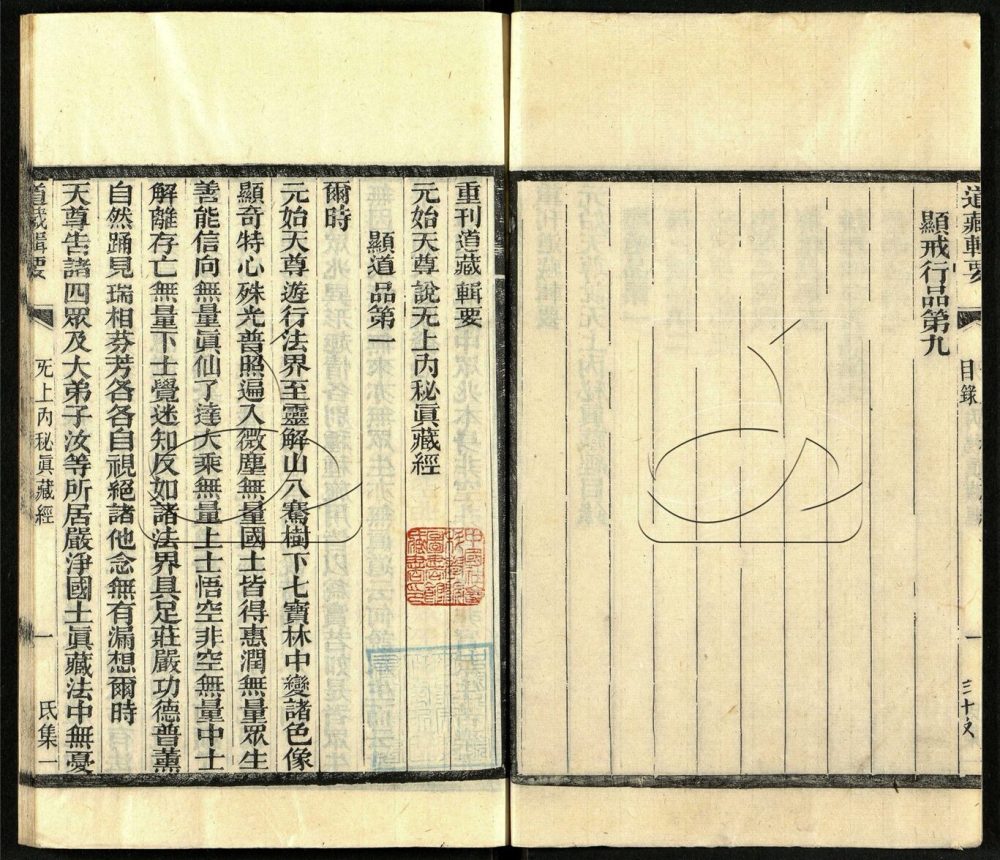 道藏輯要
目錄
一
顯戒行品第九
重刊道藏輯要
元始天尊說无上內秘眞藏經
顯道品第一
爾時
元始天尊遊行法界至靈解山八騫樹下七寶林中變諸色像
顯奇特心殊光普照遍入微塵無量國土皆得惠潤無量眾生
善能信向無量眞仙了達大乘無量上士悟空非空無量中士
解離存亡無量下士覺迷知反如諸法界具足莊嚴功德普薰
自然踊見瑞相芬芳各各自視絕諸他念無有漏想爾時
天尊告諸四眾及大弟子汝等所居嚴淨國土眞藏法中無憂
道藏輯要
无上內秘眞藏經
一
氐集一